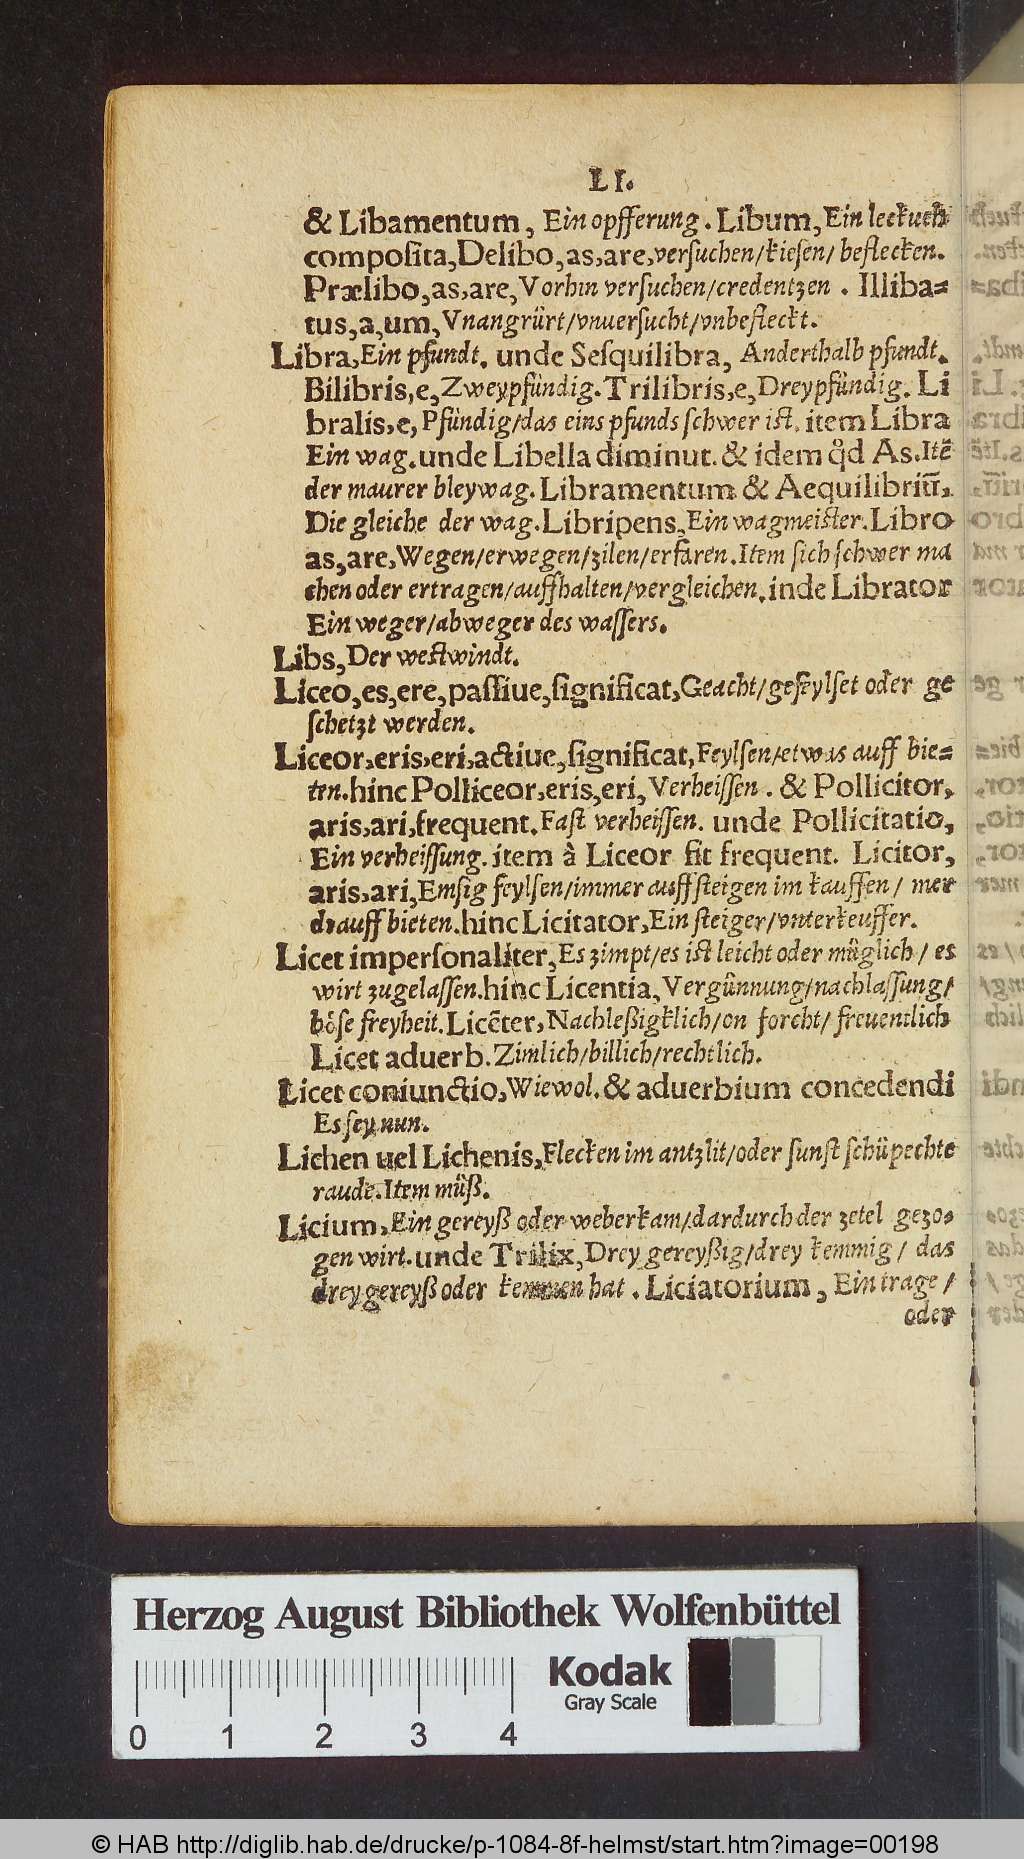 LI.
& Libamentum, Ein opfferung. Libum, Ein leckuch
composita, Delibo, as, are, versuchen/kiesen/ beflecken.
Prælibo, as, are, Vorhin versuchen/credentzen . Illiba=
tus, a, um, Vnangrürt/vnuersucht/vnbefleckt.
Libra, Ein pfundt. unde Sesquilibra, Anderthalb pfundt.
Bilibris, e, Zweypfündig. Trilibris, e, Dreypfündig. Li
bralis, e, Pfündig/das eins pfunds schwer ist. item Libra
Ein wag. unde Libella diminut. & idem qd̃ As. Itē
der maurer bleywag. Libramentum & Aequilibriū,
Die gleiche der wag. Libripens, Ein wagmeister. Libro
as, are, Wegen/erwegen/zilen/erfaren. Item sich schwer ma
chen oder ertragen/auffhalten/vergleichen. inde Librator
Ein weger/abweger des wassers.
Libs, Der westwindt.
Liceo, es, ere, passiue, significat, Geacht/gefeylset oder ge
schetzt werden.
Liceor, eris, eri, actiue, significat, Feylsen/etwas auff bie=
ten. hinc Polliceor, eris, eri, Verheissen . & Pollicitor,
aris, ari, frequent. Fast verheissen. unde Pollicitatio,
Ein verheissung. item à Liceor fit frequent. Licitor,
aris, ari, Emsig feylsen/immer auffsteigen im kauffen/ mer
drauff bieten. hinc Licitator, Ein steiger/vnterkeuffer.
Licet impersonaliter, Es zimpt/es ist leicht oder müglich / es
wirt zugelassen. hinc Licentia, Vergünnung/nachlassung/
böse freyheit. Licēter, Nachleßigklich/on forcht/ freuentlich
Licet aduerb. Zimlich/billich/rechtlich.
Licet coniunctio, Wiewol. & aduerbium concedendi
Es sey nun.
Lichen uel Lichenis, Flecken im antzlit/oder sunst schüpechte
raude. Item müß.
Licium, Ein gereyß oder weberkam/dardurch der zetel gezo=
gen wirt. unde Trilix, Drey gereyßig/drey kemmig / das
drey gereyß oder kemmen hat . Liciatorium, Ein trage /
oder
Herzog August Bibliothek Wolfenbüttel
Kodak
Gray Scale
0 1 2 3 4
© HAB http://diglib.hab.de/drucke/p-1084-8f-helmst/start.htm?image=00198